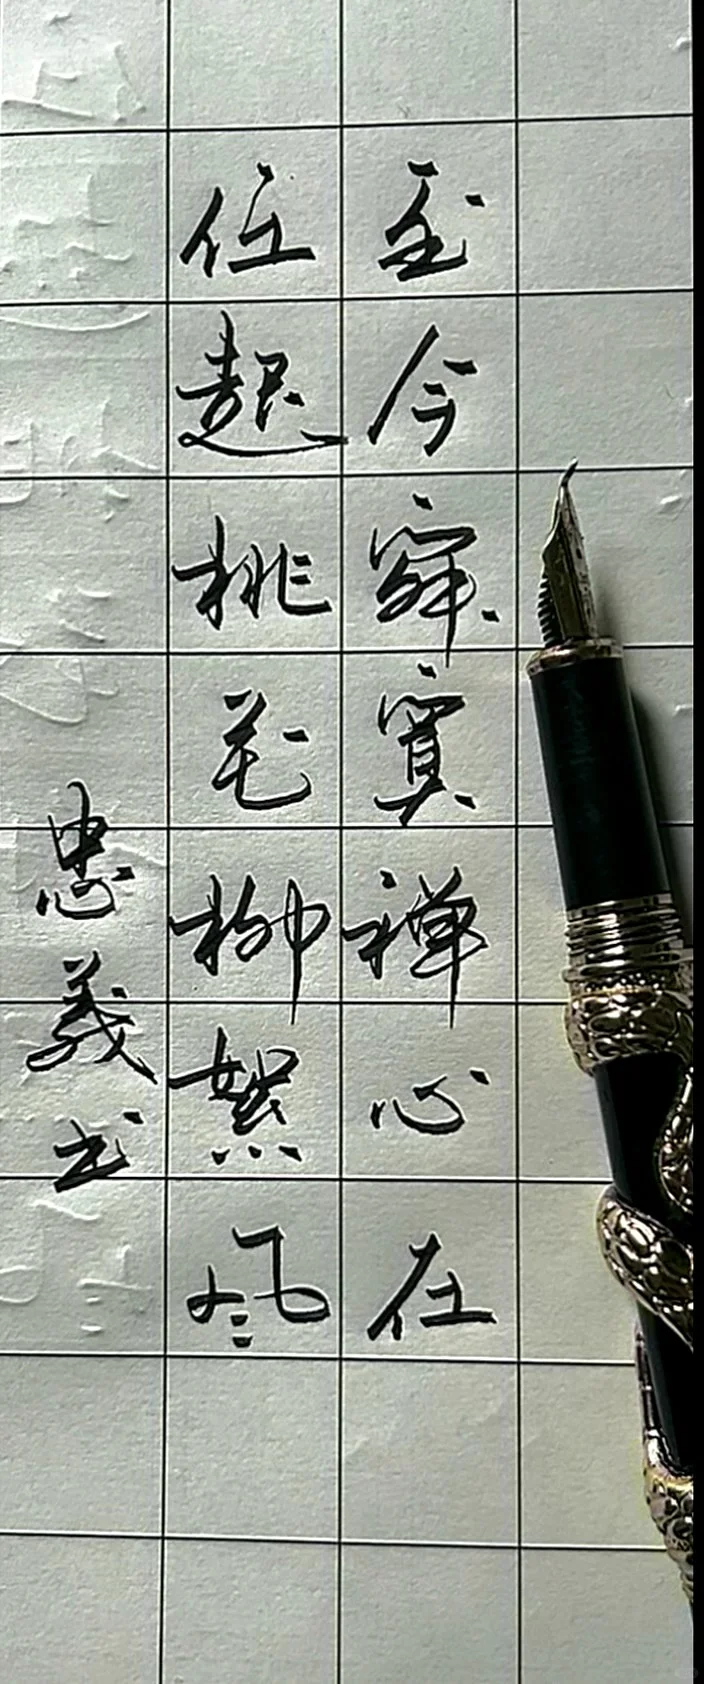 至今寂寞禪心在
任起桃花柳絮風
忠義书